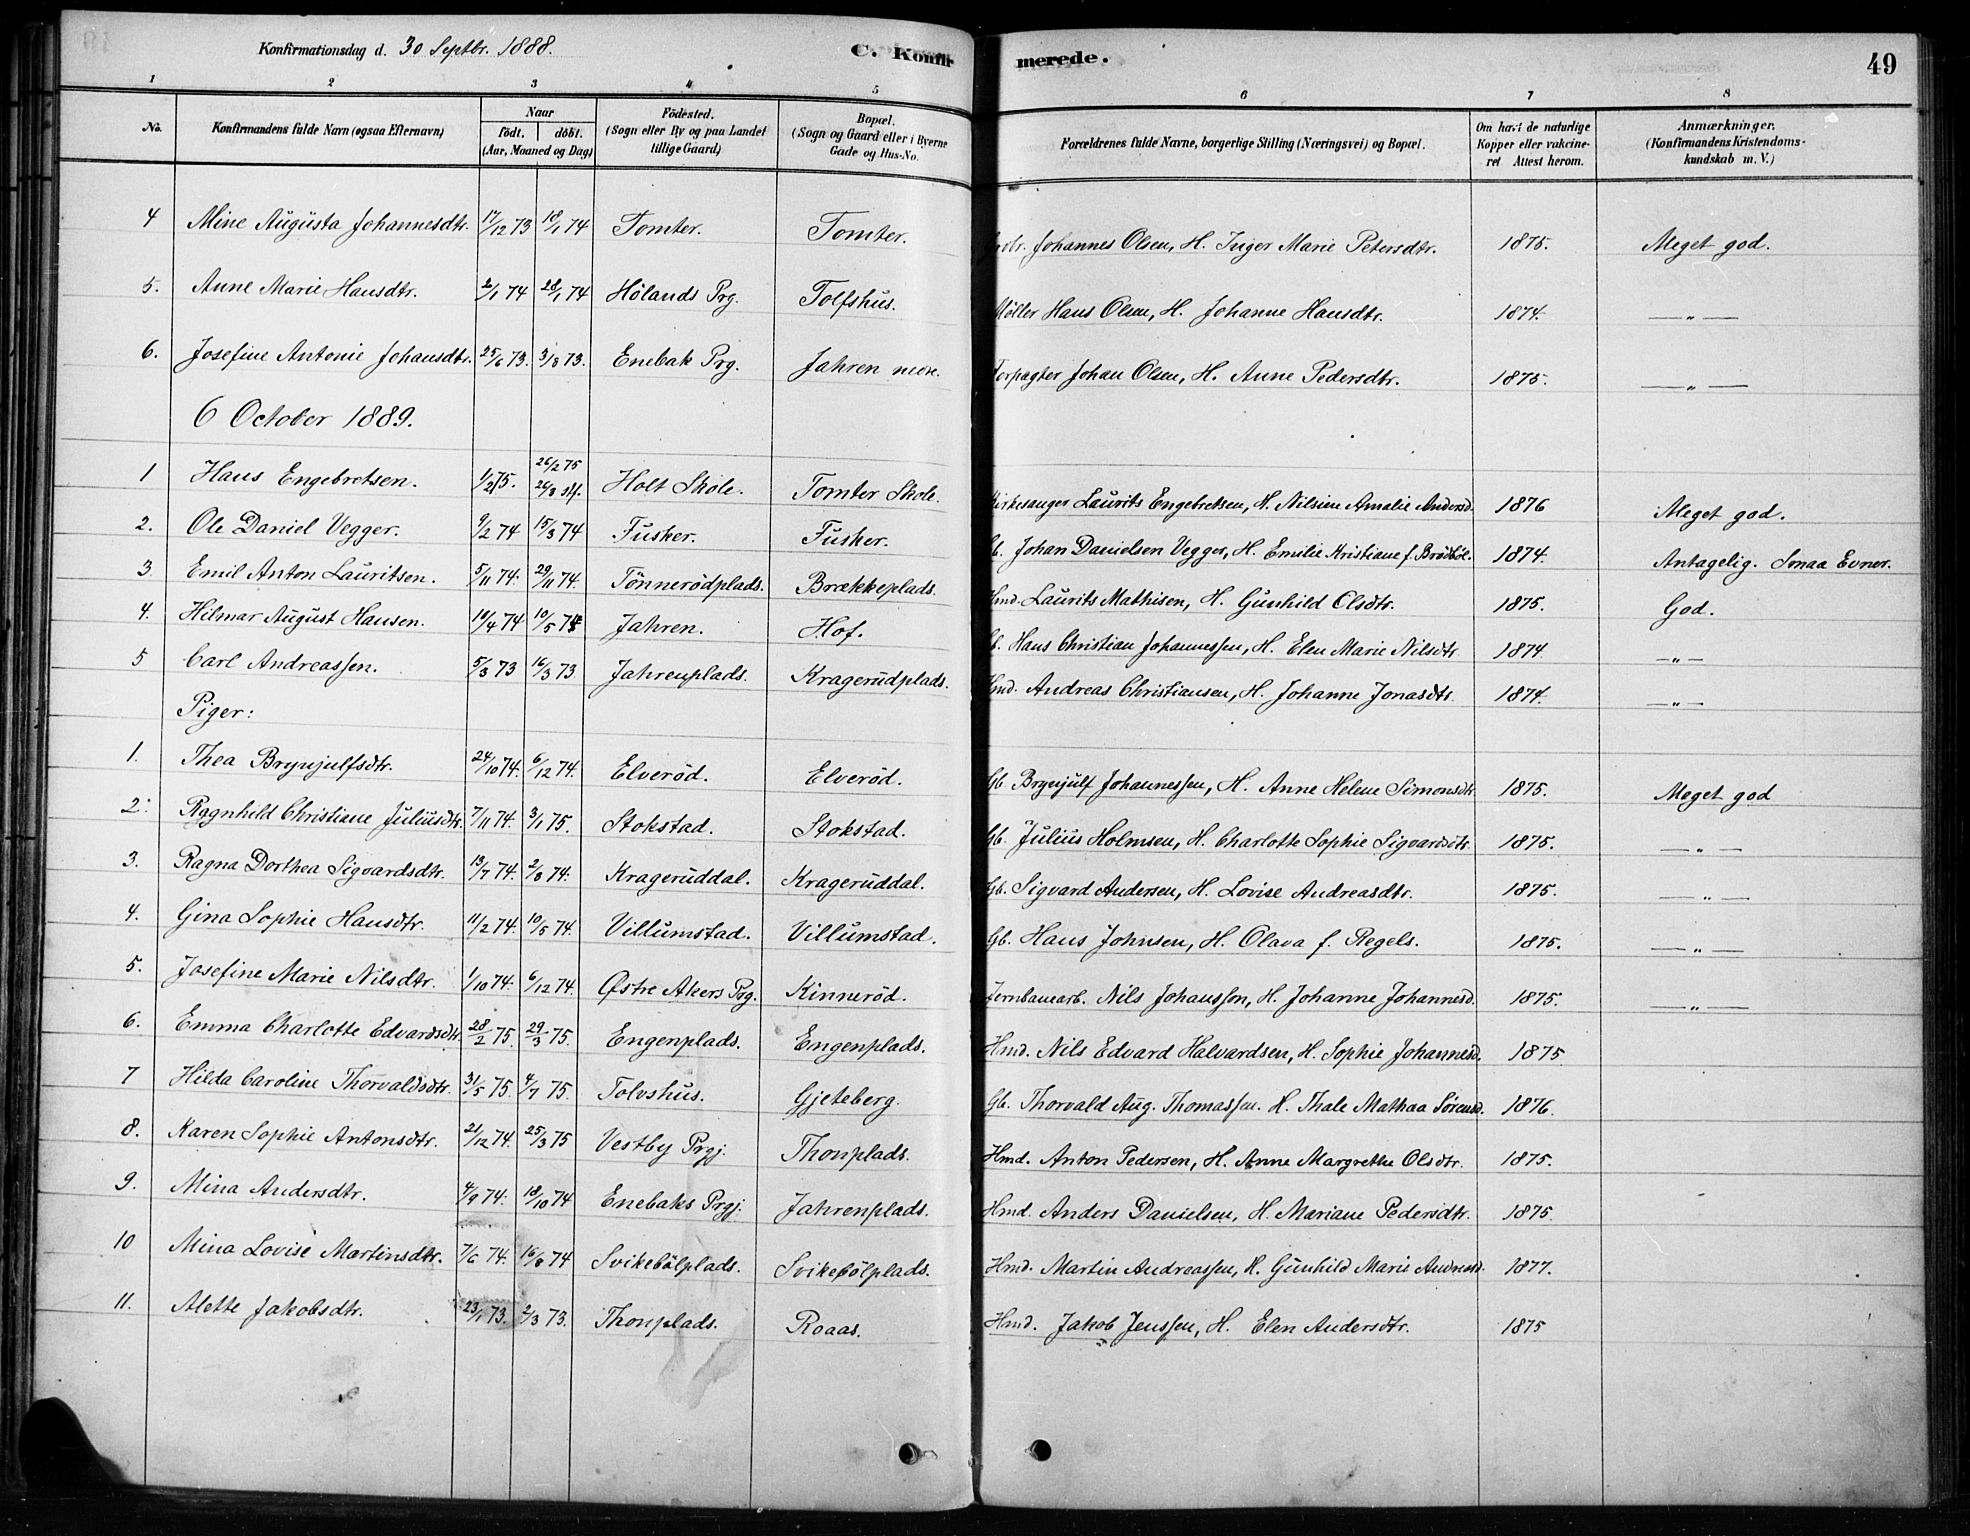 Konfirmationsdag d. 30 Septbr. 1888. C. Konfirmerede. 49
1 2 3 4 5 6 7 8
No. Konfirmandens fulde Navn (ogsaa Efternavn) Naar födt. döbt. (Aar, Maaned og Dag) Födested. (Sogn eller By og paa Landet tillige Gaard) Bopæl. (Sogn og Gaard eller i Byerne Gade og Hus-No. Forældrenes fulde Navne, borgerlige Stilling (Næringsvei) og Bopæl. Om havt de naturlige Kopper eller vakcineret Attest herom. Anmærkninger. (Konfirmandens Kristendomskundskab m. V.)
4 Mine Augusta Johannesdtr. 17/12 73 18/1 74 Tomter. Tomter. Johannes Olsen, H. Inger Marie Petersdtr. 1875. Meget god.
5. Anne Marie Hansdtr. 2/1 74 28/1 74 Hölands Prg. Tolfshus. Möller Hans Olsen, H. Johanne Hansdtr. 1874. —„—
6. Josefine Antonie Johansdtr. 25/6 73. 3/8 73. Enebak Prg. Jahren nore. Forpagter Johan Olsen, H. Anne Pedersdtr. 1875. —„—
6 October 1889.
1 Hans Engebretsen. 1/2 75. 26/2 75 26/3 stf. Holt Skole. Tomter Skole. Kirkesanger Laurits Engebretsen, H. Nilsine Amalie Andersd. 1876 Meget god.
2. Ole Daniel Vegger. 9/2 74 15/3 74 Fusker. Fusker. Gb. Johan Danielsen Vegger, H. Emilie Kristiane f. Brödböl. 1874. Antagelig. Smaa Evner.
3. Emil Anton Lauritsen. 5/11 74. 29/11 74. Tönnerödplads. Brækkeplads. Hmd. Laurits Mathisen, H. Gunhild Olsdtr. 1875. God.
4. Hilmar August Hansen. 10/4 74 10/5 74 Jahren. Hof. Gb. Hans Christian Johannessen, H. Elen Marie Nilsdtr. 1874. —„—
5 Carl Andreassen. 5/3 73 16/3 73 Jahrenplads. Kragerudplads. Hmd. Andreas Christiansen, H. Johanne Jonasdtr. 1874. —„—
Piger:
1. Thea Brynjulfsdtr. 24/10 74. 6/12 74. Elveröd. Elveröd. Gb. Brynjulf Johannessen, H. Anne Helene Simonsdtr 1875. Meget god
2. Ragnhild Christiane Juliusdtr. 7/11 74. 3/1 75. Stokstad. Stokstad. Gb. Julius Holmsen, H. Charlotte Sophie Sigvardsdtr. 1875. —„—
3. Ragna Dorthea Sigvardsdtr. 13/7 74. 2/8 74. Krageruddal. Krageruddal. Gb. Sigvard Andersen, H. Lovise Andreasdtr. 1875. —„—
4. Gina Sophie Hansdtr. 11/2 74. 10/5 74. Villumstad. Villumstad. Gb. Hans Johnsen, H. Olava f. Regels. 1875. —„—
5. Josefine Marie Nilsdtr. 1/10 74. 6/12 74. Østre Akers Prg. Kinneröd. Jernbanearb. Nils Johansson, H. Johanne Johannesd. 1875. —„—
6. Emma Charlotte Edvardsdtr. 28/2 75. 29/3 75. Engenplads. Engenplads. Hmd. Nils Edvard Halvardsen, H. Sophie Johannesd. 1875
7 Hilda Caroline Thorvaldsdtr. 31/5 75. 4/7 75. Tolvshus. Gjeteberg. Gb. Thorvald Aug. Thomassen. H. Thale Mathea Sörensd. 1876.
8. Karen Sophie Antonsdtr. 21/12 74. 25/3 75 Vestby Prgj. Thonplads. Hmd. Anton Pedersen, H. Anne Margrethe Olsdtr. 1875.
9. Mina Andersdtr. 4/9 74. 18/10 74 Enebaks Prgj. Jahrenplads. Hmd. Anders Danielsen, H. Mariane Pedersdtr. 1875.
10 Mina Lovise Martinsdtr. 7/6 74. 16/8 74 Svikebölplads. Svikebölplads. Hmd. Martin Andreassen, H. Gunhild Marie Andreasd. 1877.
11. Alette Jakobsdtr. 23/1 73. 2/3 73. Thonplads. Roaas. Hmd. Jakob Jenssen, H. Elen Andersdtr. 1875